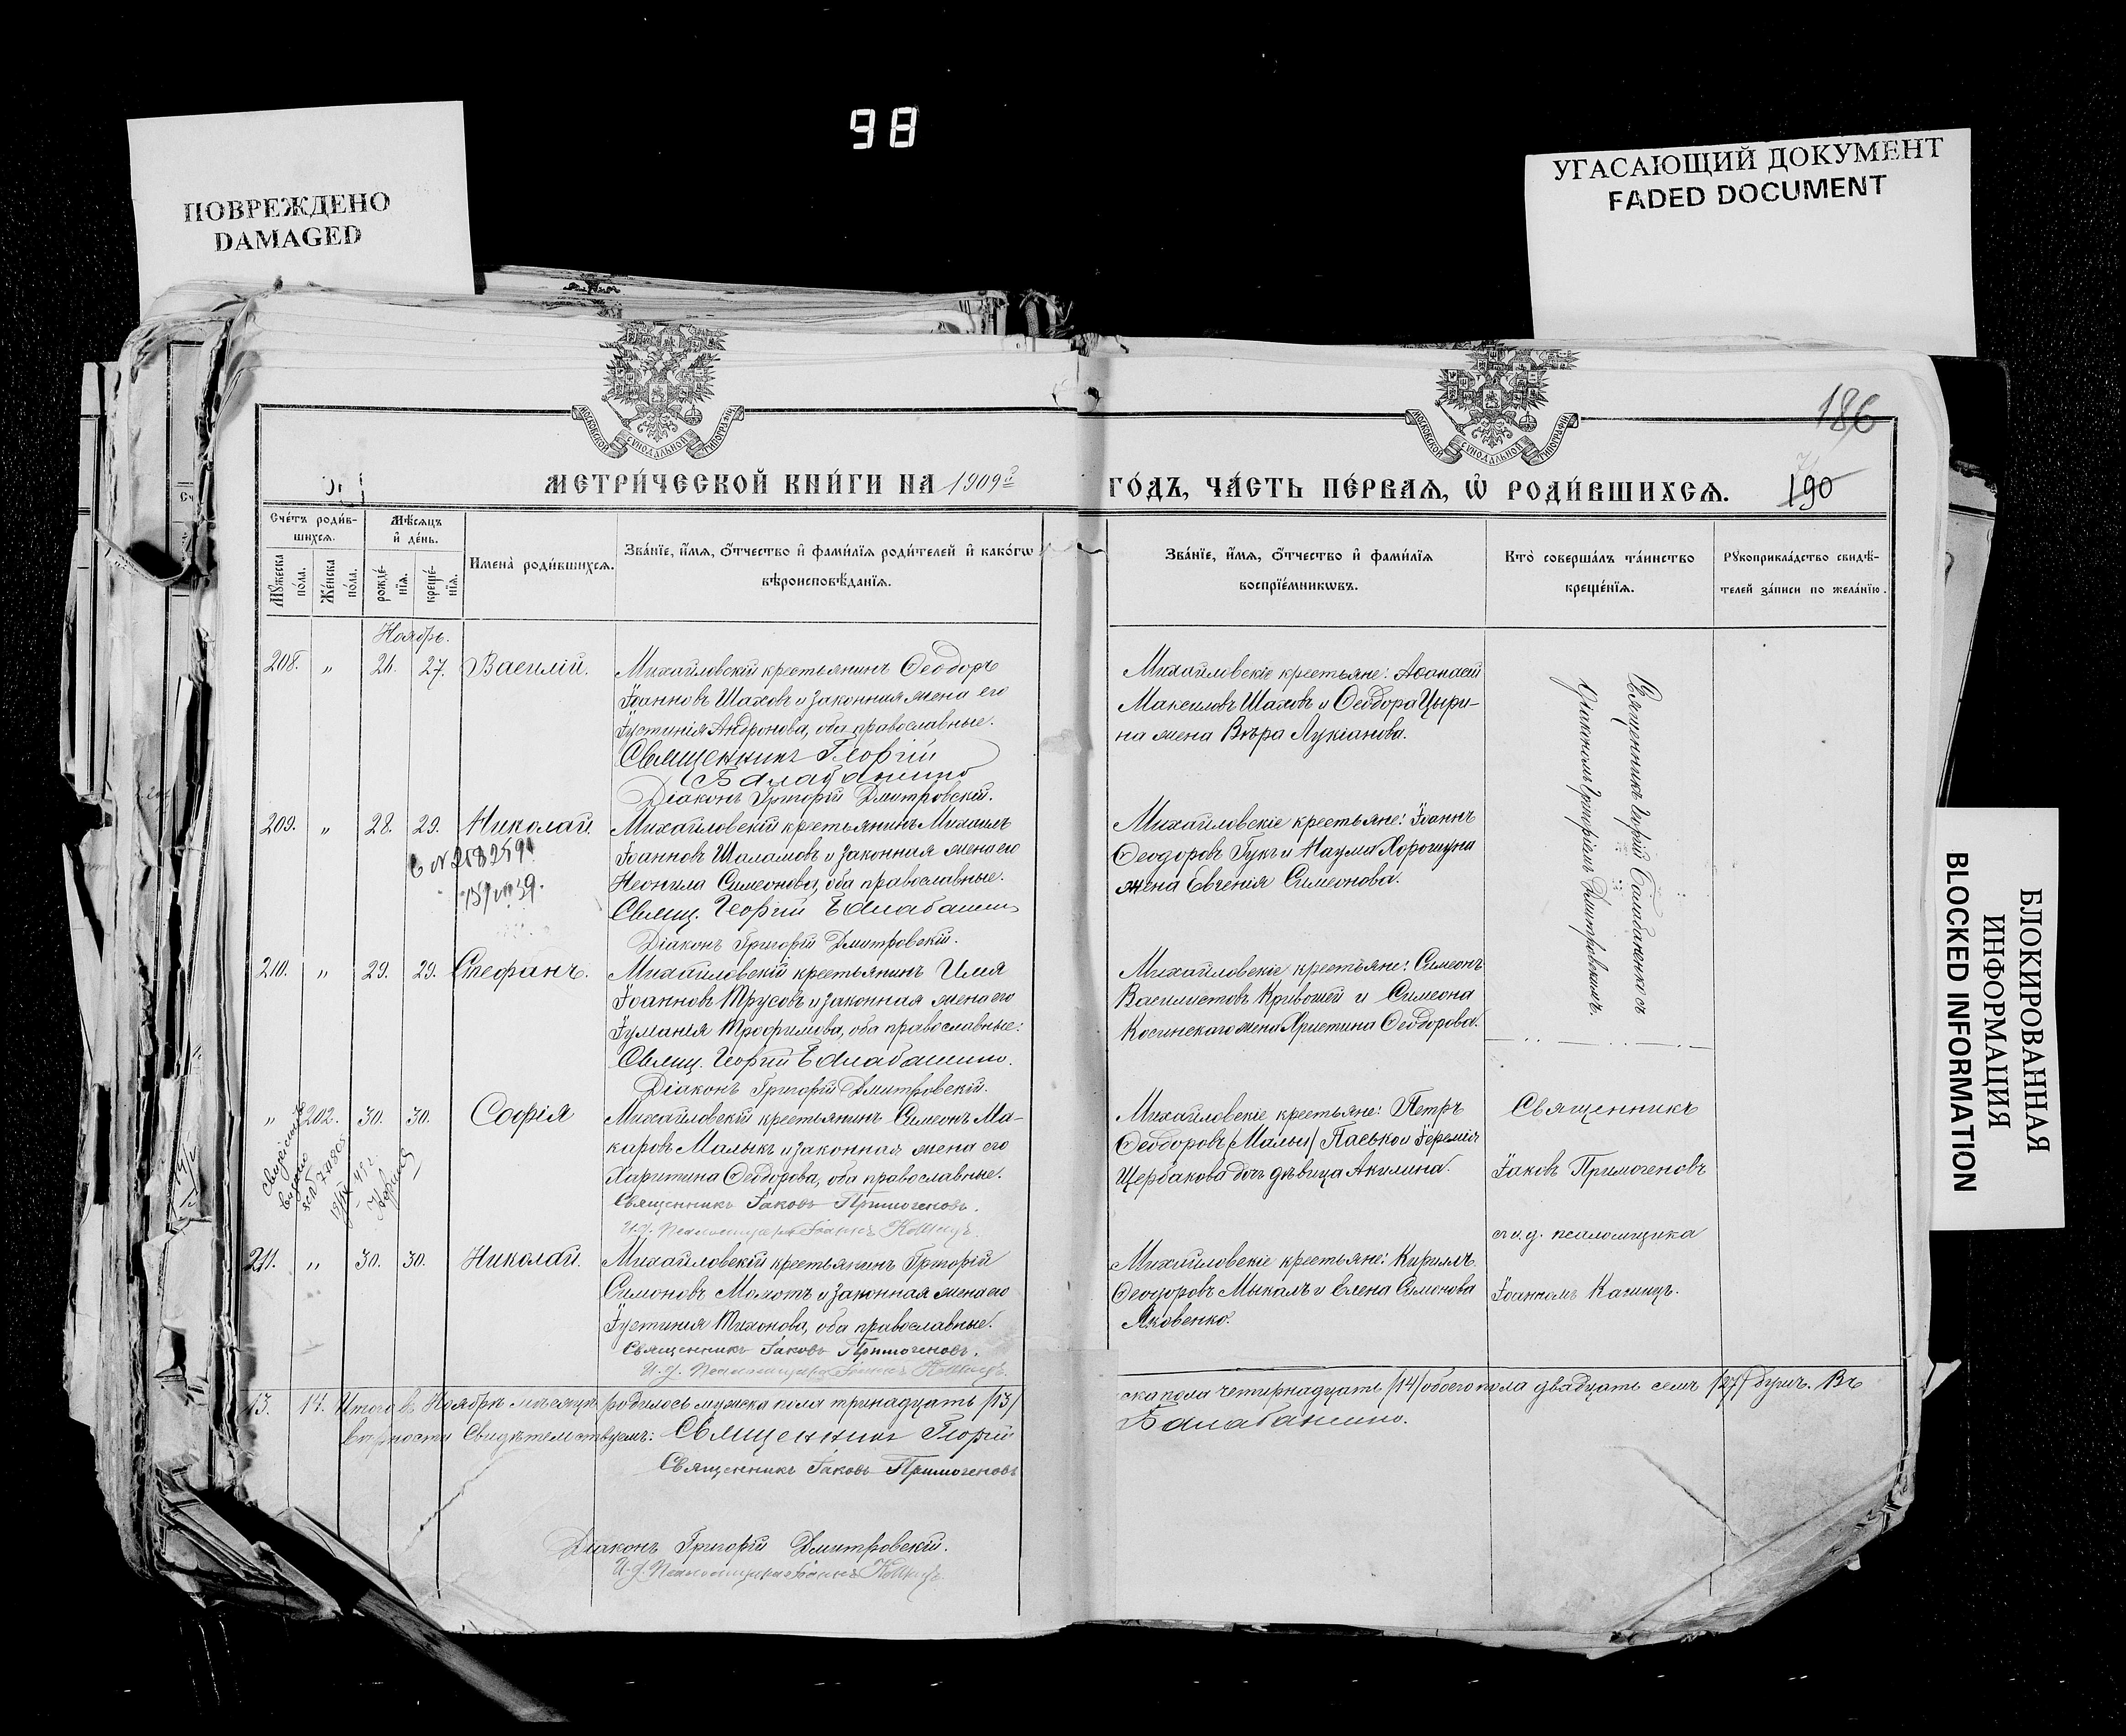 98
ПОВРЕЖДЕНО
DAMAGED
УГАСАЮЩИЙ ДОКУМЕНТ
FADED DOCUMENT
БЛОКИРОВАННАЯ
ИНФОРМАЦИЯ
BLOCKED INFORMATION
МОСКОВСКОЙ СУНОДАЛЬНОЙ ТИПОГРАФІИ
МОСКОВСКОЙ СУНОДАЛЬНОЙ ТИПОГРАФІИ
186
190
МЕТРИ́ЧЕСКОЙ КНИ́ГИ НА 1909й
ГО́ДЪ, ЧА́СТЬ ПЕ́РВАѦ, Ѡ҆ РОДИ́ВШИХСѦ.
Сче́тъ роди́в-
шихсѧ.
Мꙋ́жеска по́ла.
Же́нска по́ла.
Мѣ́сѧцъ
и҆ де́нь.
рожде́-
нїѧ.
креще́-
нїѧ.
Имена̀ роди́вшихсѧ.
Зва́нїе, и҆́мѧ, ѻ҆́тчество и҆ фами́лїѧ роди́телей и҆ како́гѡ
вѣроисповѣ́данїѧ.
Зва́нїе, и҆́мѧ, ѻ҆́тчество и҆ фами́лїѧ
воспрїе́мникѡвъ.
Кто̀ соверша́лъ та́инство
креще́нїѧ.
Рꙋкоприкла́дство свидѣ́-
телей за́писи по жела́нїю.
Ноябрь.
208. „ 21. 27. Василій.
Михайловскій крестьянинъ Ѳеодоръ
Іоанновъ Шаховъ и законная жена его
Іустинія Андронова, оба православные.
Священникъ Георгій
Балабаненко
Діаконъ Григорій Дмитровскій.
Михайловскіе крестьяне: Аѳанасій
Максимовъ Шаховъ и Ѳеодора Цыри-
на жена Вѣра Лукіанова.
Священникъ Георгій Балабаненко съ
Діакономъ Григоріемъ Дмитровскимъ.
209. „ 28. 29. Николай.
Михайловскій крестьянинъ Михаилъ
Іоанновъ Шаламовъ и законная жена его
Неонила Симеонова, оба православные.
Свящ. Георгій Балабаненко
Діаконъ Григорій Дмитровскій.
Михайловскіе крестьяне: Іоаннъ
Ѳеодоровъ Гукъ и Наума Хорошуна
жена Евгенія Симеонова.
210. „ 29. 29. Стефанъ.
Михайловскій крестьянинъ Илія
Іоанновъ Трусовъ и законная жена его
Іуланія Трофимова, оба православные:
Свящ. Георгій Балабаненко.
Діаконъ Григорій Дмитровскій.
Михайловскіе крестьяне: Симеонъ
Василистовъ Кривошей и Симеона
Косинскаго жена Христина Ѳеодорова.
„ 202. 30. 30. Софія
Михайловскій крестьянинъ Симеонъ Ма-
каровъ Малыкъ и законная жена его
Харитина Ѳеодорова, оба православные.
Священникъ Іаковъ Примогеновъ.
Михайловскіе крестьяне: Петръ
Ѳеодоровъ (Малый) Пасько и Іеремія
Щербакова дочь дѣвица Акилина.
Священникъ
Іаковъ Примогеновъ
с и. д. псаломщика
211. „ 30. 30. Николай.
Михайловскій крестьянинъ Григорій
Симоновъ Момотъ и законная жена его
Іустинія Тихонова, оба православные.
Священникъ Іаковъ Примогеновъ.
Михайловскіе крестьяне: Кириллъ
Ѳеодоровъ Мыкалъ и Елена Симонова
Яковенко.
13. 14. Итого въ Ноябрѣ мѣсяцѣ родилось мужска пола тринадцать /13/
ска пола четырнадцать /14/ обоего пола двадцать семь /27/ душъ. Въ
вѣрности свидѣтельствуемъ: Священникъ Георгій
Балабаненко.
Священникъ Іаковъ Примогеновъ
Діаконъ Григорій Дмитровскій.